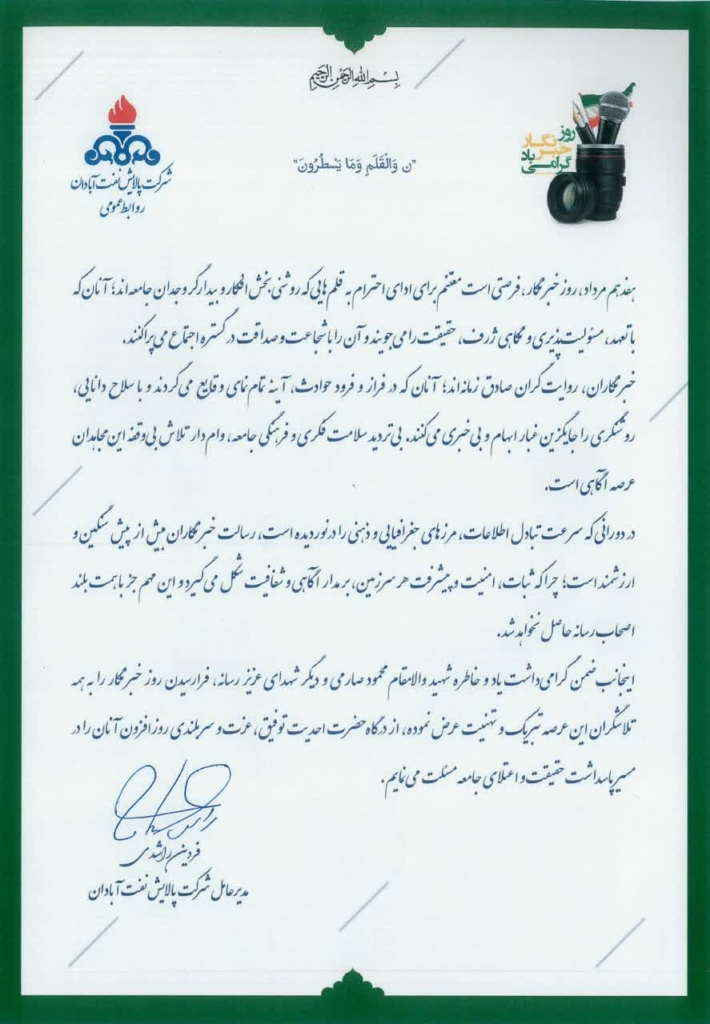 بسم الله الرحمن الرحیم
روز
خبرنگار
گرامی باد
شرکت پالایش نفت آبادان
روابط عمومی
"ن وَالْقَلَمِ وَمَا يَسْطُرُونَ"
هفدهم مرداد، روز خبرنگار، فرصتی است مغتنم برای ادای احترام به قلم‌هایی که روشنی بخش افکار و بیدارگر وجدان جامعه اند؛ آنان که
با تعهد، مسئولیت پذیری و نگاهی ژرف، حقیقت را می جویند و آن را با شجاعت و صداقت در گستره اجتماع می پراکنند.
خبرنگاران، روایت گران صادق زمانه اند؛ آنان که در فراز و فرود حوادث، آینه تمام نمای وقایع می گردند و با سلاح دانایی،
روشنگری را جایگزین غبار ابهام و بی خبری می کنند. بی تردید سلامت فکری و فرهنگی جامعه، وام دار تلاش بی وقفه این مجاهدان
عرصه آگاهی است.
در دورانی که سرعت تبادل اطلاعات، مرزهای جغرافیایی و ذهنی را درنوردیده است، رسالت خبرنگاران بیش از پیش سنگین و
ارزشمند است؛ چرا که ثبات، امنیت و پیشرفت هر سرزمین، بر مدار آگاهی و شفافیت شکل می گیرد و این مهم جز با همت بلند
اصحاب رسانه حاصل نخواهد شد.
اینجانب ضمن گرامی داشت یاد و خاطره شهید والامقام محمود صارمی و دیگر شهدای عزیز رسانه، فرارسیدن روز خبرنگار را به همه
تلاشگران این عرصه تبریک و تهنیت عرض نموده، از درگاه حضرت احدیت توفیق، عزت و سربلندی روزافزون آنان را در
مسیر پاسداشت حقیقت و اعتلای جامعه مسئلت می نمایم.
فردین راشدی
مدیرعامل شرکت پالایش نفت آبادان